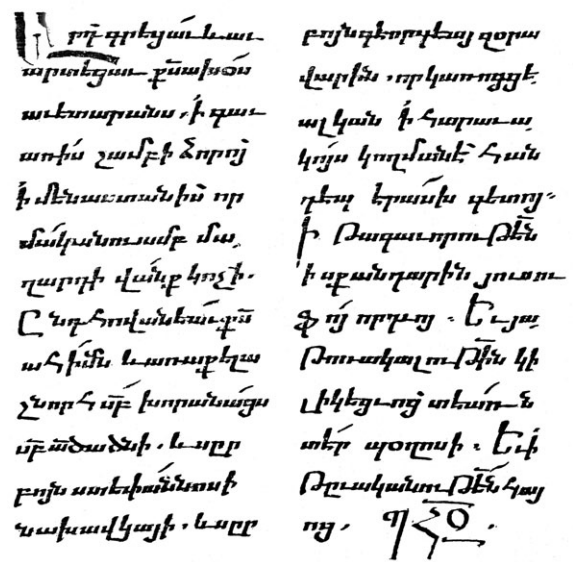 Արդ գրեցաւ և աւ
արտեցաւ քս̅ախօս
աւետարանս, ի գաւ
առիս շամբի ձորոյ
ի մենաստանիս որ
մականուամբ մա
ղարդի վանք կոչի.
Ընդ հովանեաւ քս̅
ահիմն և առաքելա
շնորհ սբ̅ խորանացս
սբ̅ ած̅ածնի. և սրբ
բոյն ստեփաննոսի
նախավկայի. և սրբ
բոյն գէորգեայ զօրա
վարին. որ
ալ կան ի հարաւա
կոյս կողմանէ հան
դէպ երասխ գետոյ.
Ի թագաւորութե̅ն
ի սքանդարին յուսու
ֆ ոյ որդւոյ. Եւ յա
թոռակալութե̅ն կի
լիկեցւոց տեառն
տեր պօղոսի. Եւ ի
թըւականութե̅ն հայ
ոց.